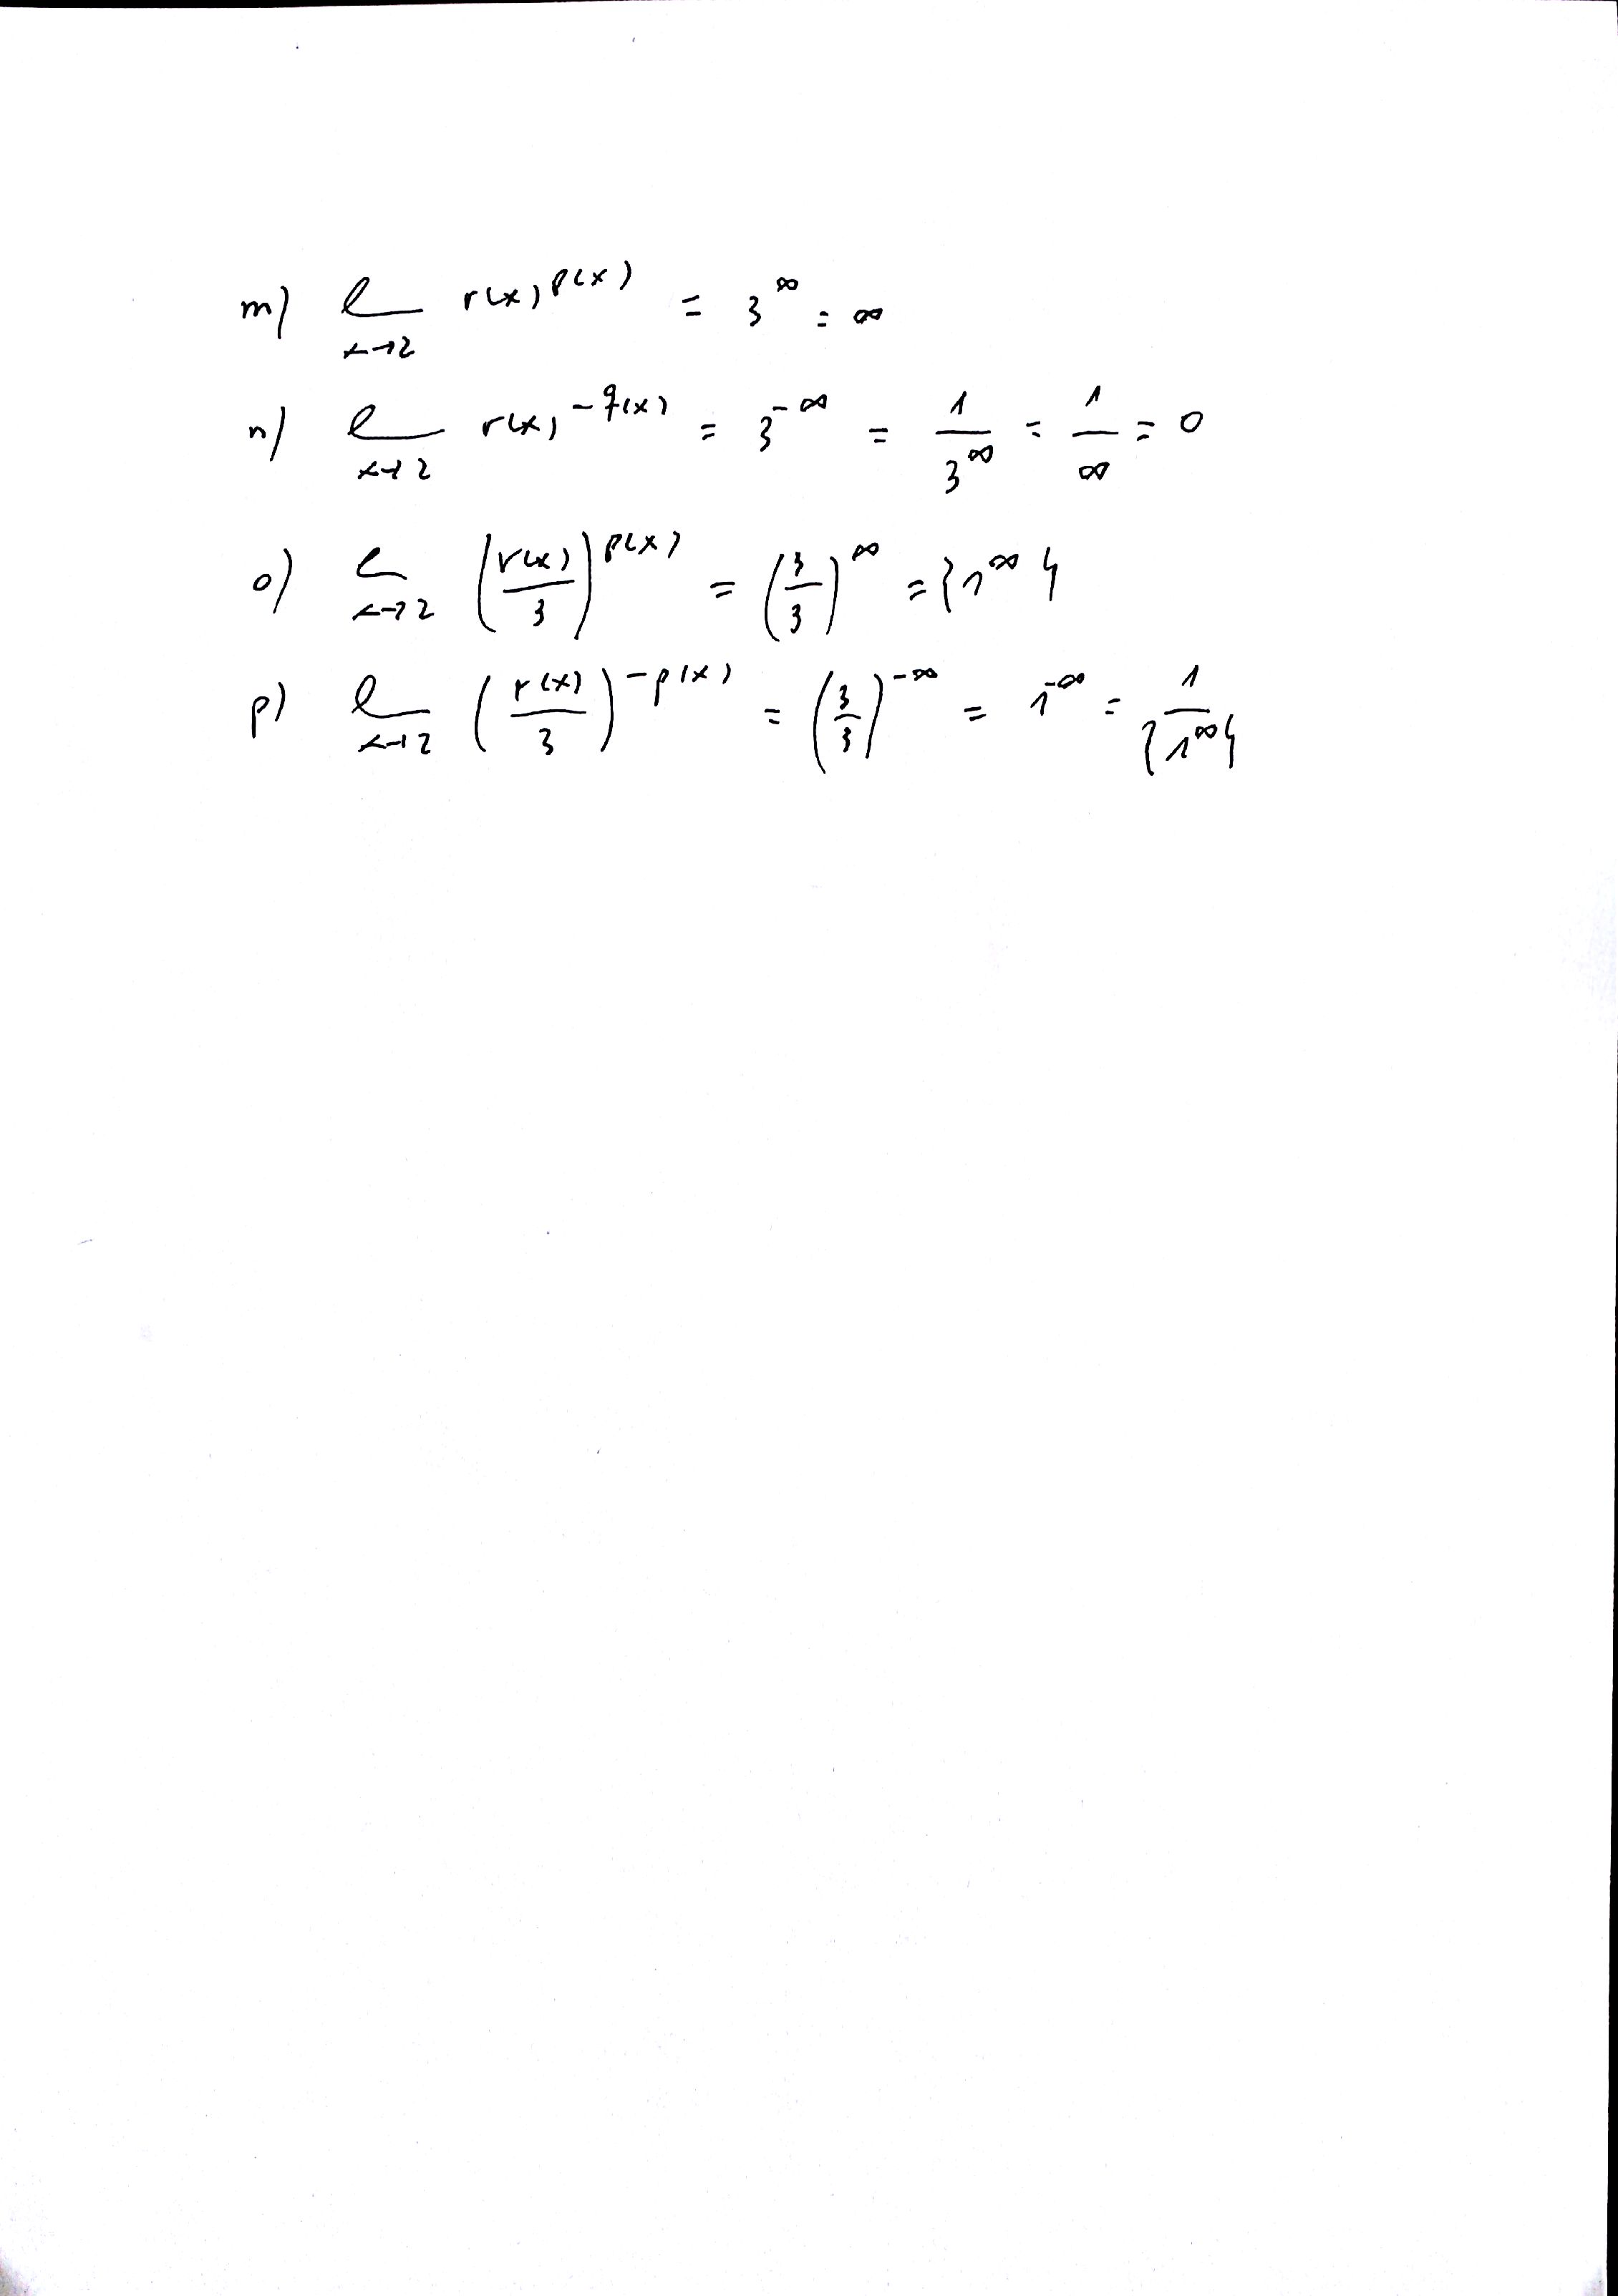 m) l x→2 r(x)^p(x) = 3^∞ = ∞
n) l x→2 r(x)^-q(x) = 3^-∞ = 1/3^∞ = 1/∞ = 0
o) l x→2 (r(x)/3)^p(x) = (3/3)^∞ = {1^∞}
p) l x→2 (r(x)/3)^-p(x) = (3/3)^-∞ = 1^-∞ = 1/{1^∞}